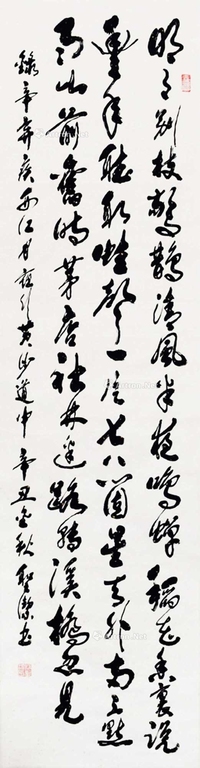 明月別枝驚鵲清風半夜鳴蟬稻花香裏說
豐年聽取蛙聲一片七八個星天外兩三點
雨山前舊時茅店社林邊路轉溪橋忽見
錄辛弃疾西江月夜行黄沙道中 辛丑金秋 书